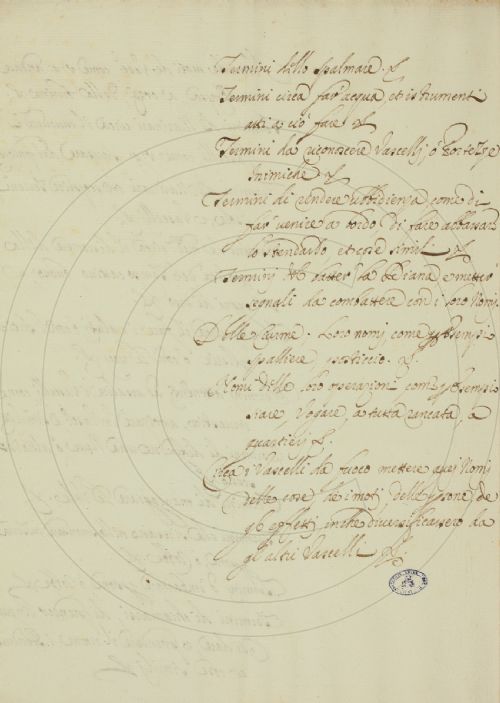 Termini dello spalmare.
Termini circa far acqua et istrumenti
atti a ciò fare
Termini da riconoscere Vascelli, o fortezze
Inimiche
Termini di rendere ubbidienza come di
far venire a bordo di fare abbassar
lo stendardo et cose simili
Termini batter la Diana e metter
segnali da combattere con i loro Nomi.
Delle Ciurme. Loro nomi, come per esempio
Spalliere
Nomi delle loro operazioni come per esempio
Siare, Vogare, a tutta rancata, a
quartieri
Circa i Vascelli da fuoco mettere qui i Nomi
delle cose de i moti, delle persone, de
gl'
gl'altri Vascelli